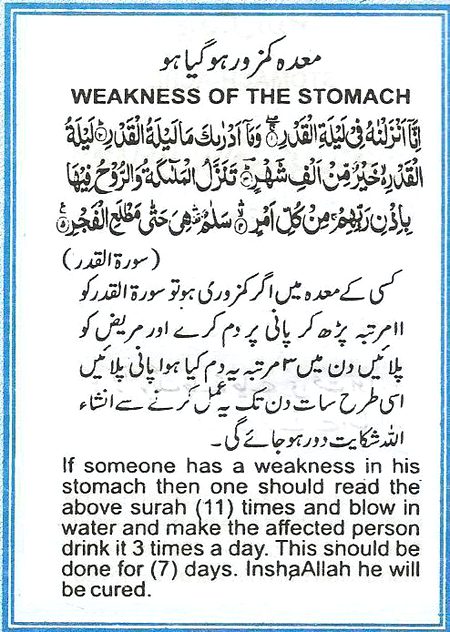 معدہ کمزور ہو گیا ہو
WEAKNESS OF THE STOMACH
اِنَّاۤ اَنْزَلْنٰهُ فِیْ لَیْلَةِ الْقَدْرِ ۝۱ وَمَاۤ اَدْرٰىكَ مَا لَیْلَةُ الْقَدْرِ ۝۲ لَیْلَةُ
الْقَدْرِ خَیْرٌ مِّنْ اَلْفِ شَهْرٍ ۝۳ تَنَزَّلُ الْمَلٰٓىِٕكَةُ وَالرُّوْحُ فِیْهَا
بِاِذْنِ رَبِّهِمْ مِنْ كُلِّ اَمْرٍ ۝۴ سَلٰمٌ هِیَ حَتّٰی مَطْلَعِ الْفَجْرِ ۝۵
(سورۃ القدر)
کسی کے معدہ میں اگر کمزوری ہو تو سورۃ القدر کو
۱۱ مرتبہ پڑھ کر پانی پر دم کرے اور مریض کو
پلائیں دن میں ۳ مرتبہ یہ دم کیا ہوا پانی پلائیں
اسی طرح سات دن تک یہ عمل کرنے سے انشاء
اللہ شکایت دور ہو جائے گی۔
If someone has a weakness in his
stomach then one should read the
above surah (11) times and blow in
water and make the affected person
drink it 3 times a day. This should be
done for (7) days. InshaAllah he will
be cured.